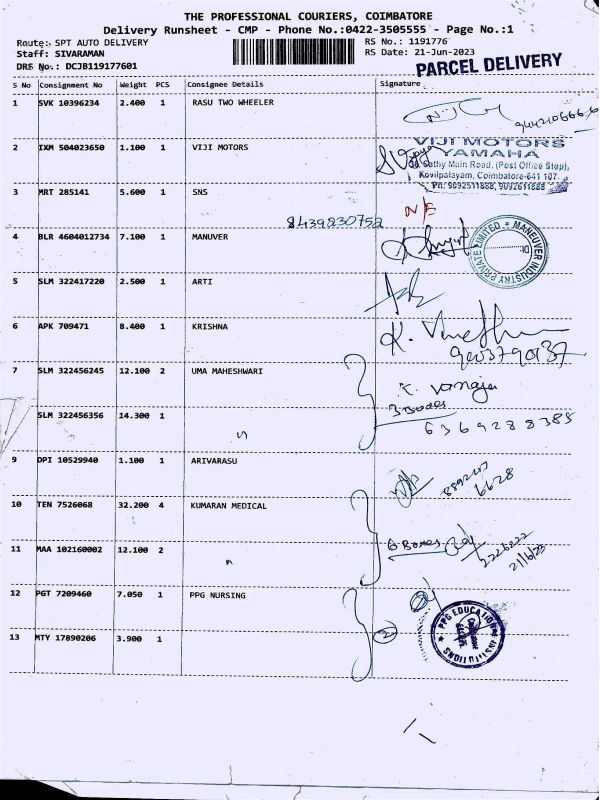 THE PROFESSIONAL COURIERS, COIMBATORE
Delivery Runsheet - CMP - Phone No.:0422-3505555 - Page No.:1
Route: SPT AUTO DELIVERY RS No.: 1191776
Staff: SIVARAMAN RS Date: 21-Jun-2023
DRS No.: DCJB119177601 PARCEL DELIVERY
S No Consignment No Weight PCS Consignee Details Signature
1 SVK 10396234 2.400 1 RASU TWO WHEELER
2 IXM 504023650 1.100 1 VIJI MOTORS
VIJI MOTORS
YAMAHA
Sathy Main Road, (Post Office Stop),
Kovilpalayam, Coimbatore-641 107.
Ph: 9092511888, 9092611888
3 MRT 285141 5.600 1 SNS N/S
8439230752
4 BLR 4604012734 7.100 1 MANUVER
MANEUVER INDUSTRY PRIVATE LIMITED
5 SLM 322417220 2.500 1 ARTI
6 APK 709471 8.400 1 KRISHNA
9003790137
7 SLM 322456245 12.100 2 UMA MAHESHWARI
SLM 322456356 14.300 1 3 Boxes
6369288385
9 DPI 10529940 1.100 1 ARIVARASU
6628
10 TEN 7526068 32.200 4 KUMARAN MEDICAL
6 Boxes
2226222
21/6/23
11 MAA 102160002 12.100 2
12 PGT 7209460 7.050 1 PPG NURSING
PPG EDUCATIONAL INSTITUTIONS
13 MTY 17890206 3.900 1 2